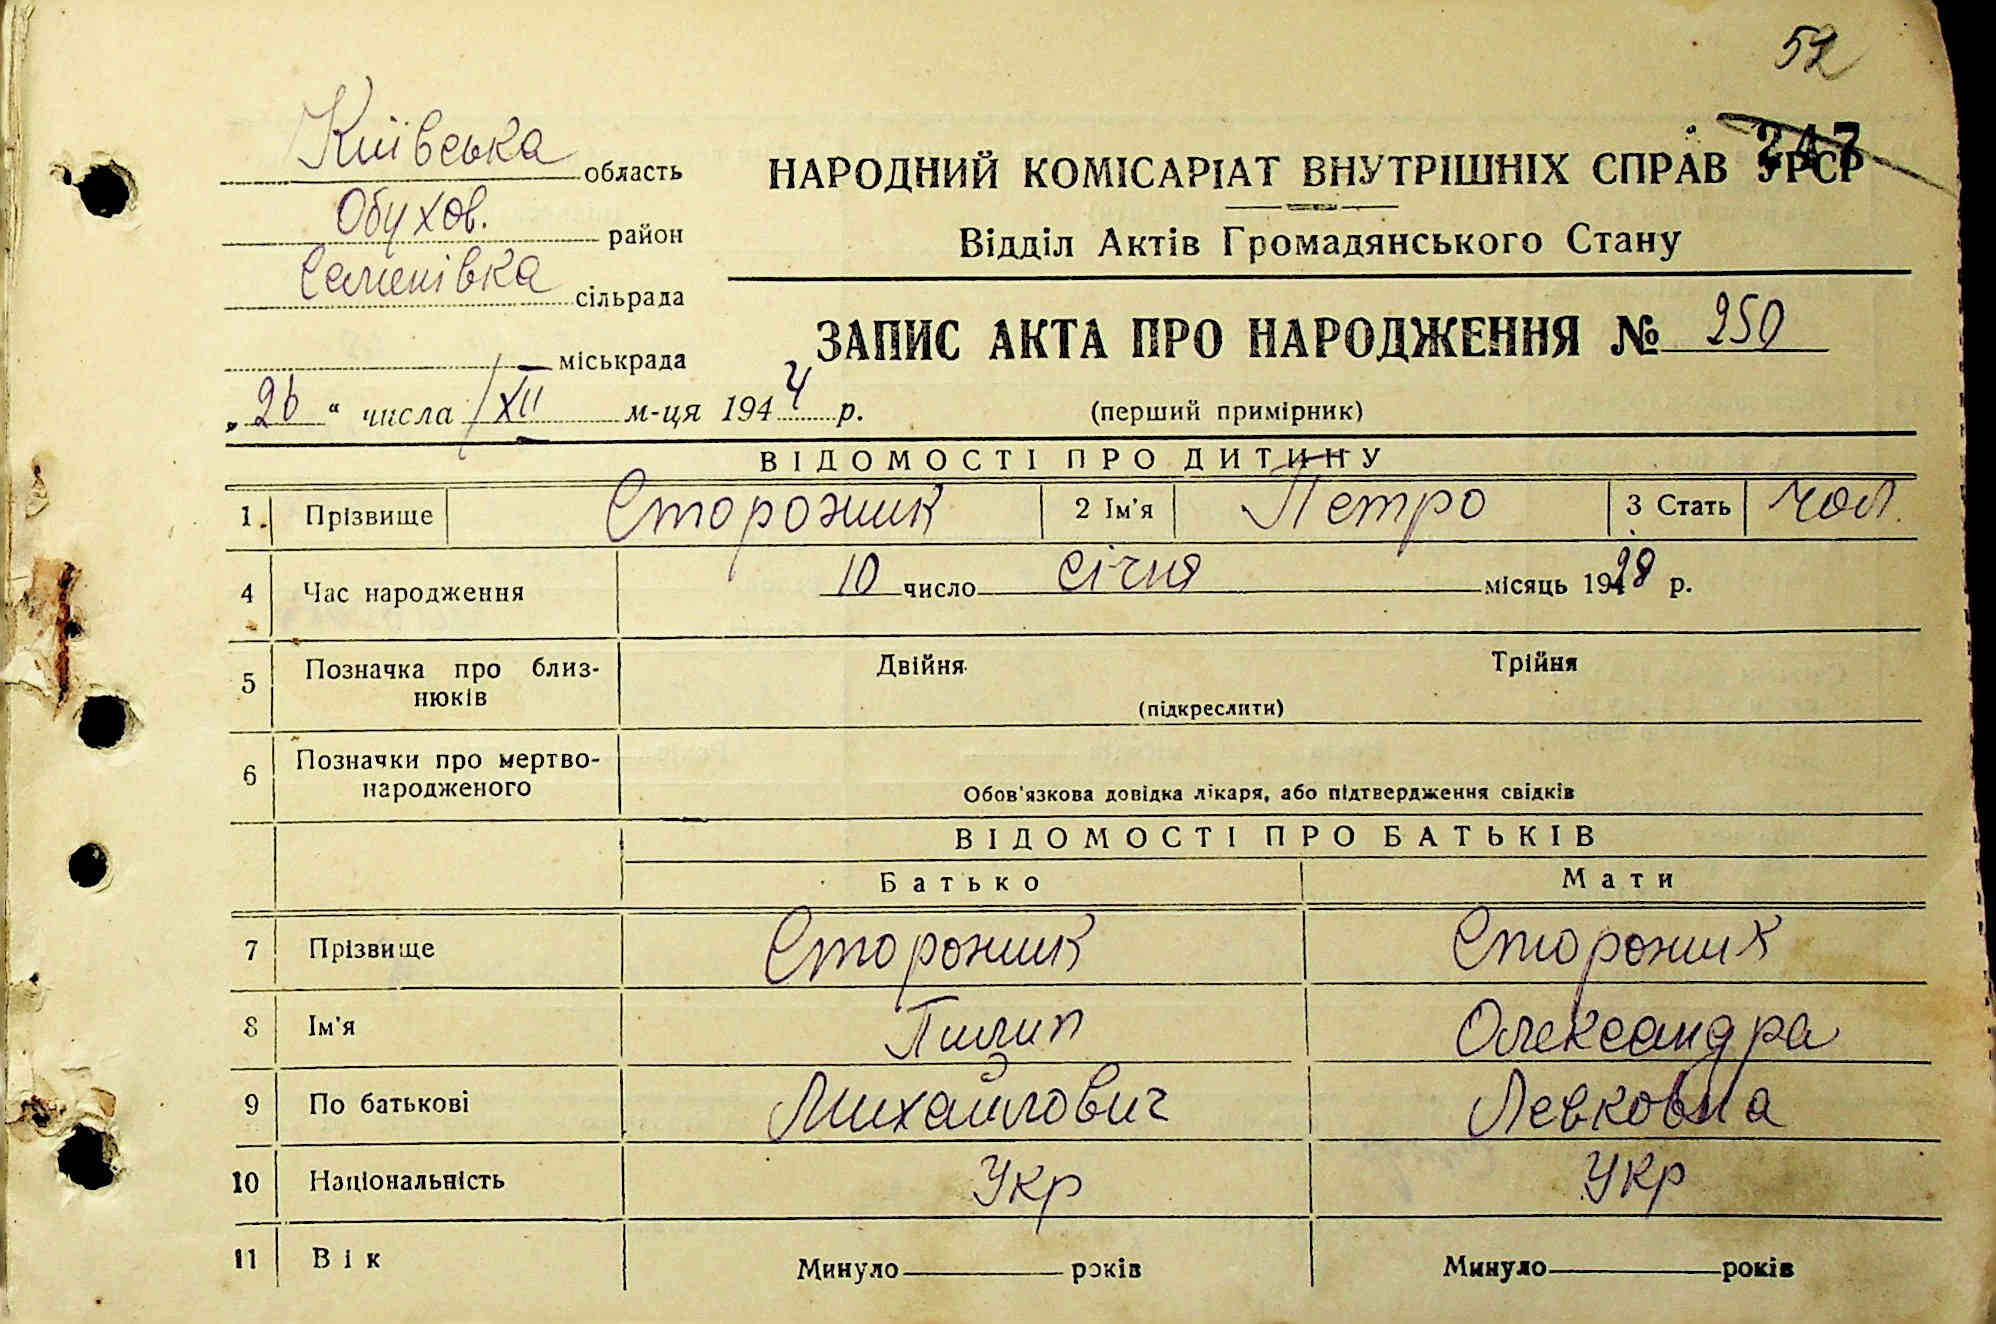 52
247
Київська область
Обухов. район
Семенівка сільрада
міськрада
„26“ числа XII м-ця 1944 р.
НАРОДНИЙ КОМІСАРІАТ ВНУТРІШНІХ СПРАВ УРСР
Відділ Актів Громадянського Стану
ЗАПИС АКТА ПРО НАРОДЖЕННЯ № 250
(перший примірник)
ВІДОМОСТІ ПРО ДИТИНУ
1 Прізвище Сторожик 2 Ім'я Петро 3 Стать чол.
4 Час народження 10 число січня місяць 1928 р.
5 Позначка про близ-
нюків
Двійня Трійня
(підкреслити)
6 Позначки про мертво-
народженого
Обов'язкова довідка лікаря, або підтвердження свідків
ВІДОМОСТІ ПРО БАТЬКІВ
Батько Мати
7 Прізвище Сторожик Сторожик
8 Ім'я Пилип Олександра
9 По батькові Михайлович Левковна
10 Національність Укр Укр
11 Вік Минуло років Минуло років